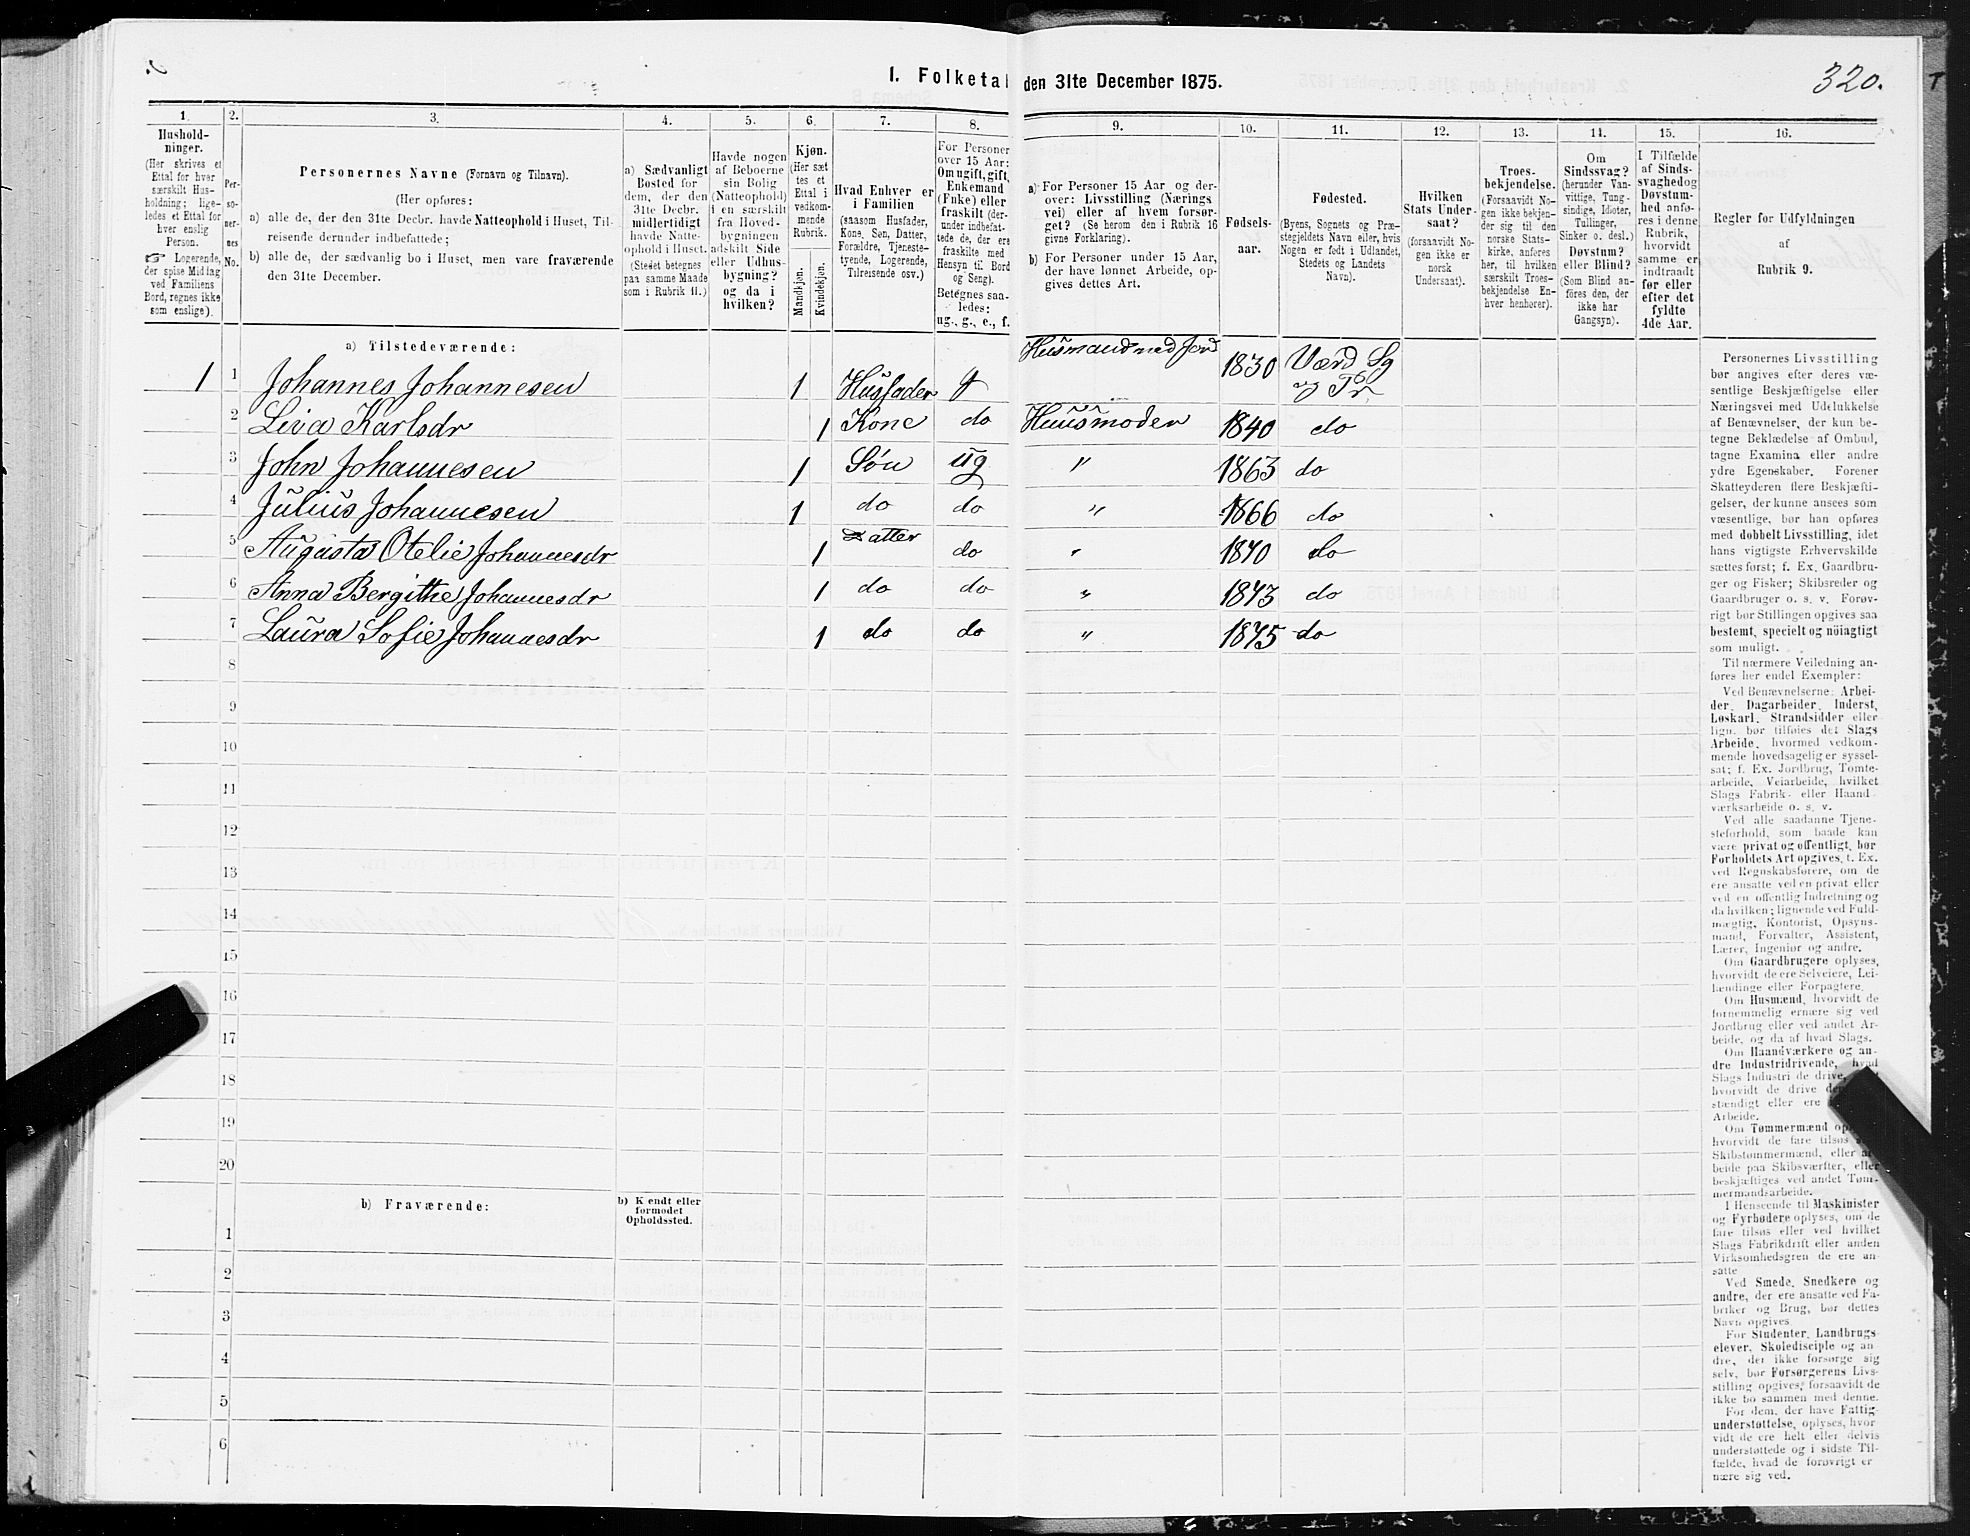 1. Folketal den 31te December 1875.
320.
1. 2. 3. 4. 5. 6. 7. 8. 9. 10. 11. 12. 13. 14. 15. 16.
Hushold-
ninger.
(Her skrives et
Ettal for hver
særskilt Hus-
holdning; lige-
ledes et Ettal for
hver enslig
Person.
☞ Logerende,
der spise Middag
ved Familiens
Bord, regnes ikke
som enslige).
Per-
so-
ner-
nes
No.
Personernes Navne (Fornavn og Tilnavn).
(Her opføres:
a) alle de, der den 31te Decbr. havde Natteophold i Huset, Til-
reisende derunder indbefattede;
b) alle de, der sædvanlig bo i Huset, men vare fraværende
den 31te December.
a) Sædvanligt
Bosted for
dem, der den
31te Decbr.
midlertidigt
havde Natte-
ophold i Huset.
(Stedet betegnes
paa samme Maade
som i Rubrik 11.)
Havde nogen
af Beboerne
sin Bolig
(Natteophold)
i en særskilt
fra Hoved-
bygningen
adskilt Side
eller Udhus-
bygning?
og da i
hvilken?
Kjøn.
(Her sæt
tes et
Ettal i
vedkom-
mende
Rubrik.
Mandkjøn.
Kvindekjøn.
Hvad Enhver er
i Familien
(saasom Husfader,
Kone, Søn, Datter,
Forældre, Tjeneste-
tyende, Logerende,
Tilreisende osv.)
For Personer
over 15 Aar:
Om ugift, gift,
Enkemand
(Enke) eller
fraskilt (der-
under indbefat-
tede de, der ere
fraskilte med
Hensyn til Bord
og Seng).
Betegnes saa-
ledes:
ug., g., e., f.
a) For Personer 15 Aar og der-
over: Livsstilling (Nærings
vei) eller af hvem forsør-
get? (Se herom den i Rubrik 16
givne Forklaring).
b) For Personer under 15 Aar,
der have lønnet Arbeide, op-
gives dettes Art.
Fødsels-
aar.
Fødested.
(Byens, Sognets og Præ-
stegjeldets Navn eller, hvis
Nogen er født i Udlandet,
Stedets og Landets
Navn).
Hvilken
Stats Under-
saat?
(forsaavidt No-
gen ikke er
norsk
Undersaat).
Troes-
bekjendelse.
(Forsaavidt No-
gen ikke bekjen-
der sig til den
norske Stats-
kirke, anføres
her, til hvilken
særskilt Troes-
bekjendelse En-
hver henhører).
Om
Sindssvag?
(herunder Van-
vittige, Tung-
sindige, Idioter,
Tullinger,
Sinker o. desl.)
Døvstum?
eller Blind?
(Som Blind an-
føres den, der
ikke har
Gangsyn).
I Tilfælde
af Sinds-
svaghed og
Døvstum-
hed anfø-
res i denne
Rubrik,
hvorvidt
samme er
indtraadt
før eller
efter det
fyldte
4de Aar.
Regler for Udfyldningen
af
Rubrik 9.
a) Tilstedeværende:
1 1 Johannes Johannesen 1 Husfader g Husmand med Jord 1830 Værd Sg og Pr
2 Liva Karlsdr 1 Kone do Huusmoder 1840 do
3 John Johannesen 1 Søn ug " 1863 do
4 Julius Johannesen 1 do do " 1866 do
5 Augusta Otelie Johannesdr 1 Datter do " 1870 do
6 Anna Bergithe Johannesdr 1 do do " 1873 do
7 Laura Sofie Johannesdr 1 do do " 1875 do
8
9
10
11
12
13
14
15
16
17
18
19
20
b) Fraværende:
b) Kjendt eller
formodet
Opholdssted.
1
2
3
4
5
6
Personernes Livsstilling
bør angives efter deres væ-
sentlige Beskjæftigelse eller
Næringsvei med Udelukkelse
af Benævnelser, der kun be-
tegne Beklædelse af Ombud,
tagne Examina eller andre
ydre Egenskaber. Forener
Skatteyderen flere Beskjæfti-
gelser, der kunne ansees som
væsentlige, bør han opføres
med dobbelt Livsstilling, idet
hans vigtigste Erhvervskilde
sættes først; f. Ex. Gaardbru-
ger og Fisker; Skibsreder og
Gaardbruger o. s. v. Forøv-
rigt bør Stillingen opgives saa
bestemt, specielt og nöiagtigt
som muligt.
Til nærmere Veiledning an-
føres her endel Exempler:
Ved Benævnelserne: Arbei-
der, Dagarbeider, Inderst,
Løskarl, Strandsidder eller
lign. bør tilføies det Slags
Arbeide, hvormed vedkom-
mende hovedsagelig er syssel-
sat; f. Ex. Jordbrug, Tomte-
arbeide, Veiarbeide, hvilket
Slags Fabrik- eller Haand-
værksarbeide o. s. v.
Ved alle saadanne Tjene-
steforhold, som baade kan
være privat og offentligt, bør
Forholdets Art opgives, t. Ex.
ved Regnskabsførere, om de
ere ansatte ved en privat eller
ved en offentlig Indretning og
da hvilken; lignende ved Fuld-
mægtig, Kontorist, Opsyns-
mand, Forvalter, Assistent,
Lærer, Ingeniør og andre.
Om Gaardbrugere oplyses,
hvorvidt de ere Selveiere, Lei-
lændinge eller Forpagtere.
Om Husmænd, hvorvidt de
fornemmelig ernære sig ved
Jordbrug eller ved andet Ar-
beide, og da af hvad Slags.
Om Haandværkere og an-
dre Industridrivende, hvad
Slags Industri de drive,
hvorvidt de drive
stændigt eller ere
Arbeide.
Om Tømmermænd
hvorvidt de fare tilsøs
Skibstømmermænd, eller ar-
beide paa Skibsværfter, eller
beskjæftiges ved andet Tøm-
mermandsarbeide.
I Henseende til Maskinister
og Fyrbødere oplyses, om de
fare tilsøs eller ved hvilket
Slags Fabrikdrift eller anden
Virksomhedsgren de ere an-
satte
Ved Smede, Snedkere og
andre, der ere ansatte ved Fa-
briker og Brug, bør dettes
Navn opgives
For Studenter, Landbrugs-
elever, Skoledisciple og an-
dre, der ikke forsørge sig
selv, bør Forsørgerens Livs-
stilling opgives, forsaavidt de
ikke bo sammen med denne.
For dem, der have Fattig-
understøttelse, oplyses, hvor-
vidt de ere helt eller delvis
understøttede og i sidste Til-
fælde, hvad de forøvrigt er
nære sig ved.